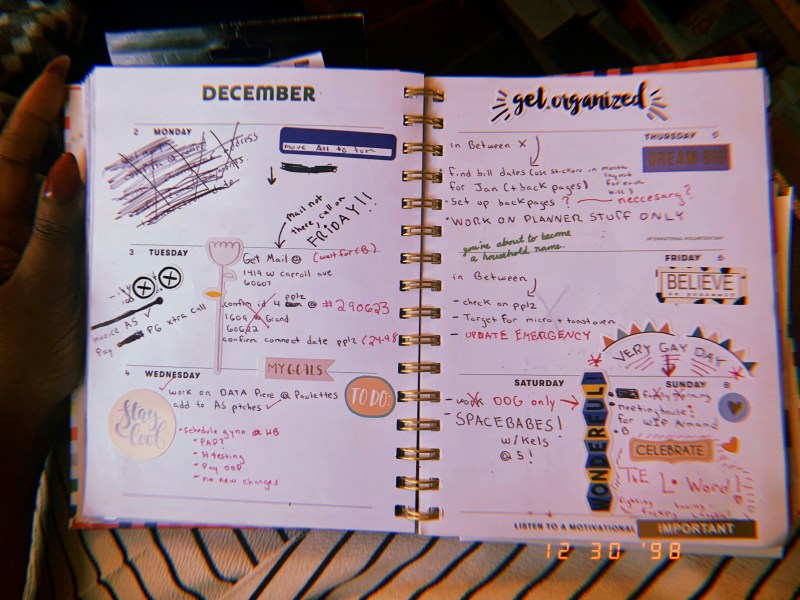 DECEMBER
2 MONDAY
address
move All to tom
Mail not
there, call on
FRIDAY!!
3 TUESDAY
Get Mail @ (wait for EB.)
1419 w carroll ave
60607
invoice AS ✓
Pay PG xtra call
confirm id 4 pplz @ #290623
1609 Grand
60622
confirm comment date pplz (24.98
MY GOALS
4 WEDNESDAY
work on DATA Piece @ Paulettes
add to AS pitches ✓
TO DO:
Stay
Cool
- schedule gyno @ HB
- PAP?
- no new changes
get organized
THURSDAY 5
in Between X
DREAM BIG
find bill dates (use stickers in month
layout
for Jan (+ back pages) for each
bill)
- Set up back pages ? neccesary?
* WORK ON PLANNER STUFF ONLY
INTERNATIONAL VOLUNTEER DAY
you're about to become
a household name.
FRIDAY 6
in Between
BELIEVE
in yourself
- check on pplz
- Target for micro + toastoven
- UPDATE EMERGENCY
VERY GAY DAY
SATURDAY
SUNDAY 8
- work DOG only →
- SPACEBABES!
w/ Kels
@ 5!
WONDERFUL!
meetinghouse:
for WIP Armand
CELEBRATE
THE L Word!
LISTEN TO A MOTIVATIONAL
IMPORTANT
12 30 '98